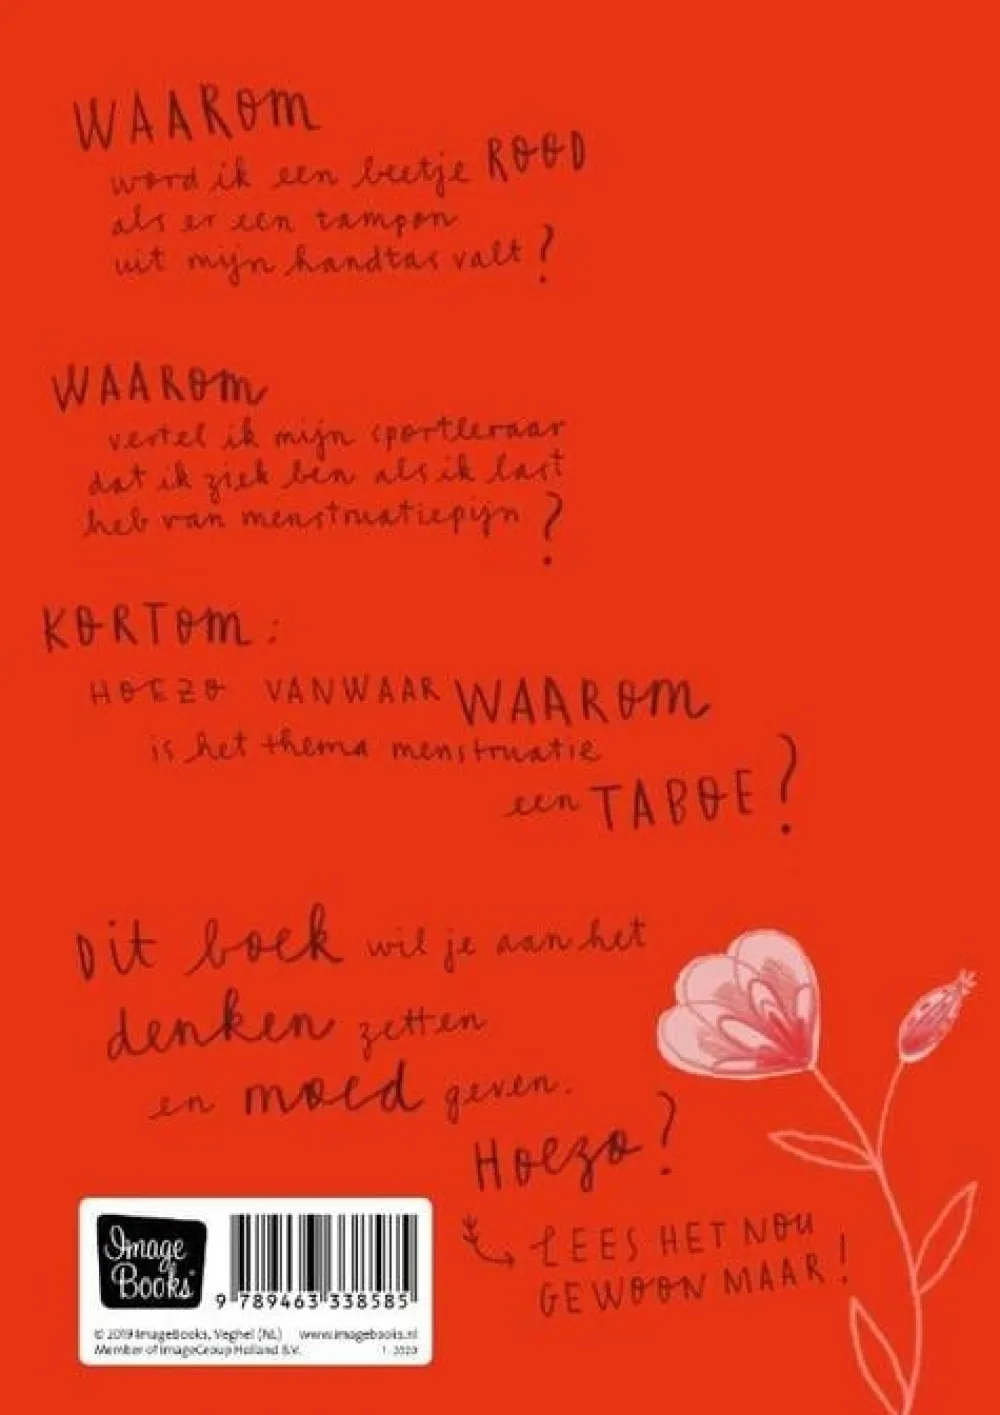 WAAROM
word ik een beetje ROOD
als er een tampon
uit mijn handtas valt?
WAAROM
vertel ik mijn sportleraar
dat ik ziek ben als ik last
heb van menstruatiepijn?
KORTOM:
HOEZO VANWAAR WAAROM
is het thema menstruatie
een TABOE?
Dit boek wil je aan het
denken zetten
en moed geven.
Hoezo?
LEES HET NOU
GEWOON MAAR!
Image
Books
9 789463 338585
© 2019 ImageBooks, Veghel (NL) www.imagebooks.nl
Member of ImageGroup Holland B.V. 1-2020